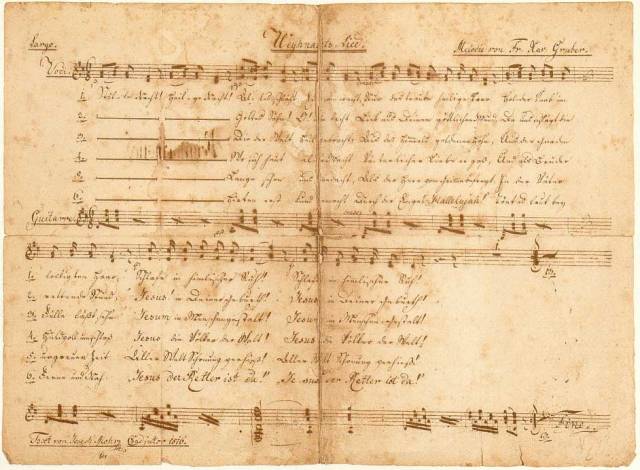 Largo. Weyhnachts-Lied. Melodie von Fr. Xav. Gruber.
Voce.
1. Stille Nacht! Heilige Nacht! Alles schläft wacht. Nur das traute heilige Paar. Holder Knab' im
2. Gottes Sohn! O! lacht Lieb' aus deinem göttlichen Mund, Da uns schlägt die
3. Die der Welt Heil gebracht, Aus des Himmels goldenen Höhn, Aus der Gnaden
4. Wo sich heut alle Macht Väterlicher Liebe ergoß, Und als Bruder
5. Lange schon uns bedacht, Als der Herr vom Grimme befreyt In der Väter
6. Hirten erst kundgemacht Durch der Engel Hallelujah! Tönt es laut bey
Guitarre
1. lockigten Haar, Schlafe in himmlischer Ruh! Schlafe in himmlischer Ruh!
2. rettende Stund. Jesus in deiner Geburth! Jesus in deiner Geburth!
3. Fülle läßt sehn Jesum in Menschengestalt! Jesum in Menschengestalt!
4. Huldvoll umschloß Jesus die Völker der Welt! Jesus die Völker der Welt!
5. urgrauer Zeit Aller Welt Schonung verhieß! Aller Welt Schonung verhieß!
6. Ferne und Nah. "Jesus der Retter ist da!" "Jesus der Retter ist da!"
Fine.
Text von Joseph Mohr Coadjutor 1816.